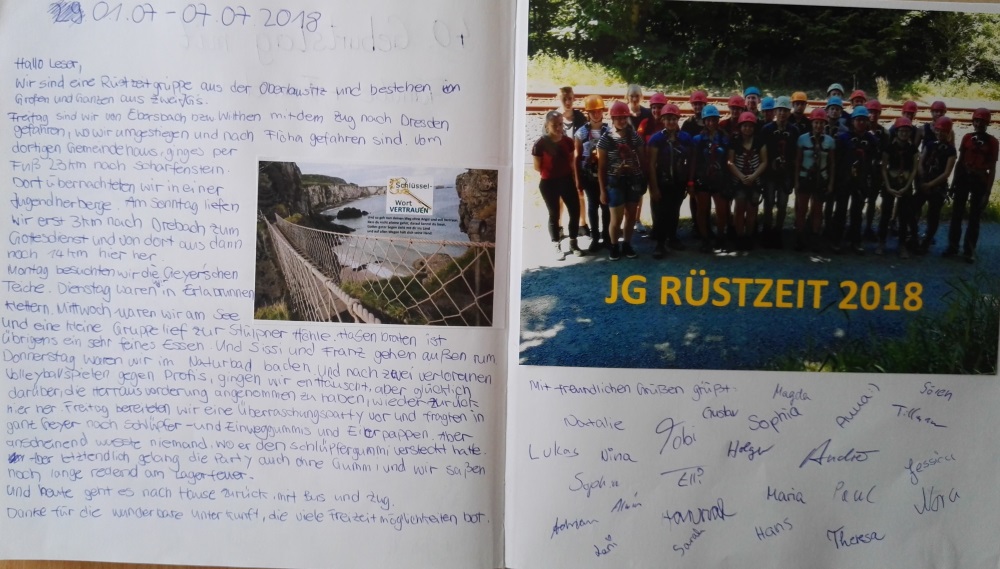 01.07 - 07.07 2018
Hallo Leser,
Wir sind eine Rüstzeitgruppe aus der Oberlausitz und bestehen im
Großen und Ganzen aus zwei JGs.
Freitag sind wir von Ebersbach bzw. Wilthen mit dem Zug nach Dresden
gefahren, wo wir umgestiegen und nach Flöha gefahren sind. Vom
dortigen Gemeindehaus, ging es per
Fuß 23km nach Scharfenstein.
Dort übernachteten wir in einer
Jugendherberge. Am Sonntag liefen
wir erst 3km nach Drebach zum
Gottesdienst und von dort aus dann
noch 14km hier her.
Montag besuchten wir die Geyerischen
Teiche. Dienstag waren in Erlabrunnen
klettern. Mittwoch waren wir am See
und eine kleine Gruppe lief zur Stülpner Höhle. Hasenbraten ist
übrigens ein sehr feines Essen. Und Sissi und Franz gehen außen rum
Donnerstag waren wir im Naturbad baden und nach zwei verlorenen
Volleyballspielen gegen Profis, gingen wir enttäuscht, aber glücklich
darüber, die Herrausvorderung angenommen zu haben, wieder zurück
hier her. Freitag bereiteten wir eine Überraschungsparty vor und fragten in
ganz Geyer nach Schlüpfer- und Einweggummis und Eierpappen. Aber
anscheinend wusste niemand, wo er den Schlüpfergummi versteckt hatte.
Aber letztendlich gelang die Party auch ohne Gummi und wir saßen
noch lange redend am Lagerfeuer.
Und heute geht es nach Hause zurück mit Bus und Zug.
Danke für die wunderbare Unterkunft, die viele Freizeitmöglichkeiten bot.
Schlüssel-
Wort
VERTRAUEN
JG RÜSTZEIT 2018
Mit freundlichen Grüßen grüßt:
Magda Sören
Natalie Tobi Gustav Sophia Anna Tillmann
Lukas Nina Holger André Jessica
Elli
Hannah Maria Paul Nora
Sarah Hans Theresa